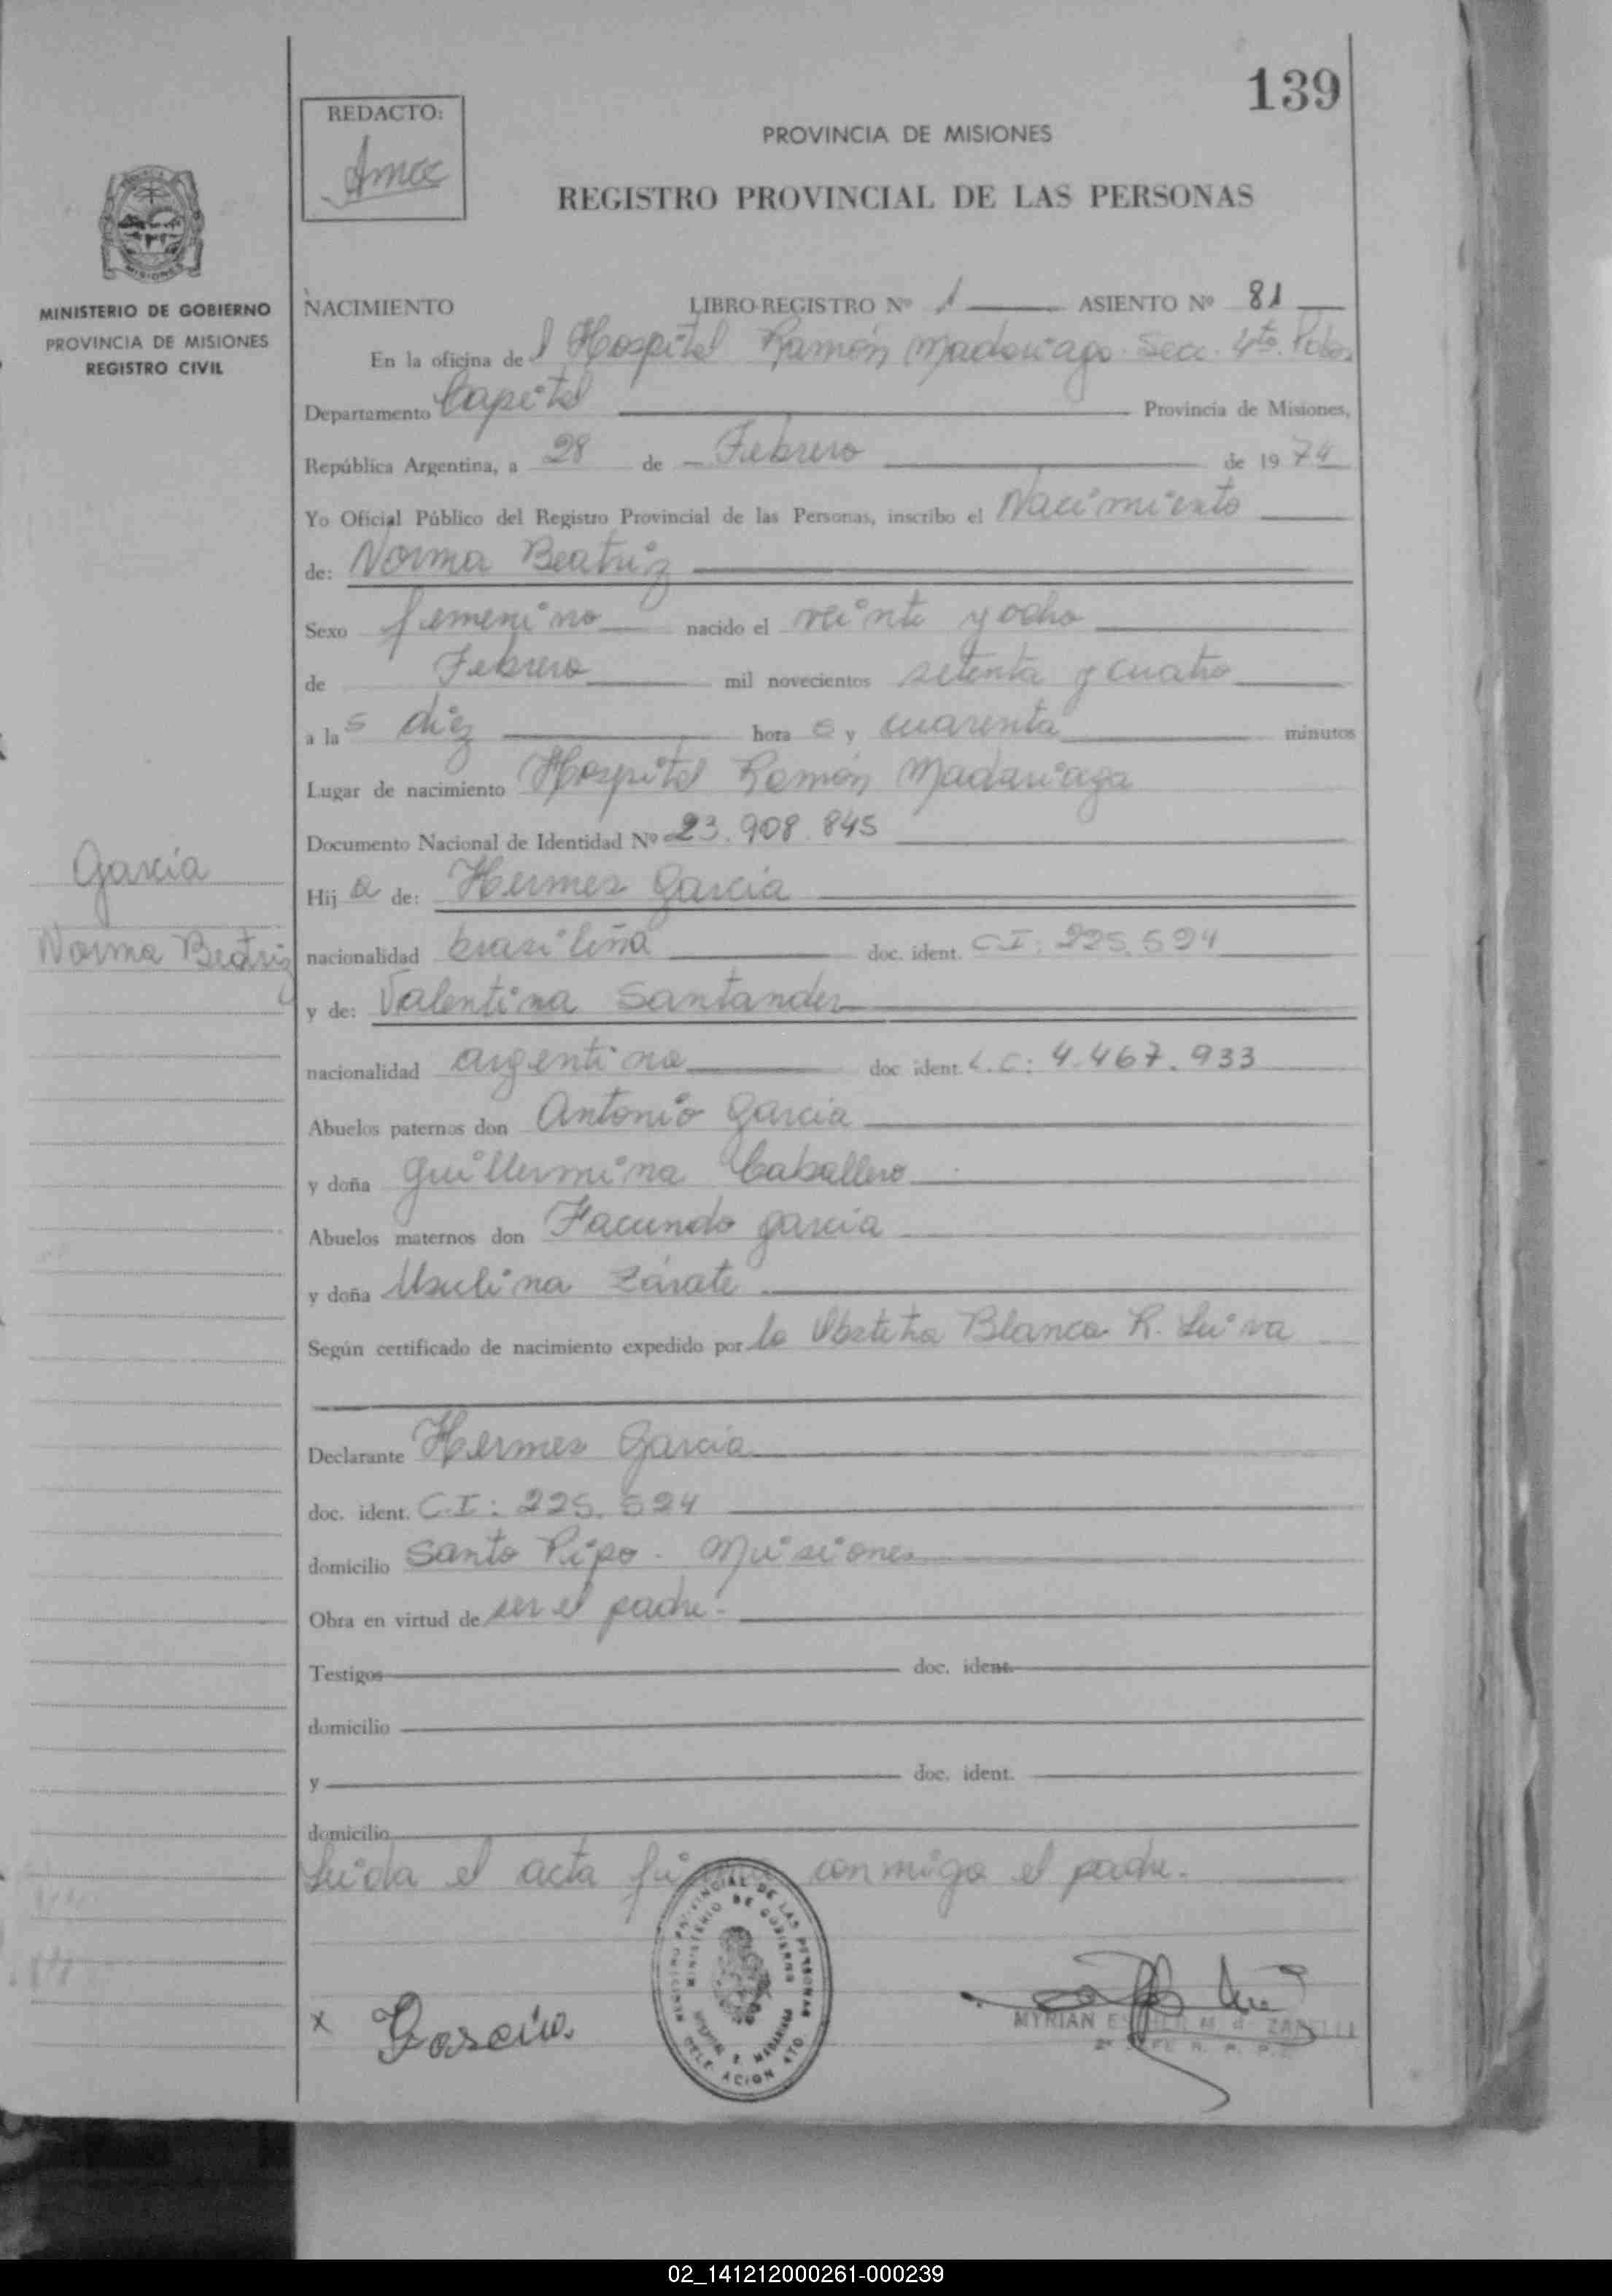 139
REDACTO:
PROVINCIA DE MISIONES
REGISTRO PROVINCIAL DE LAS PERSONAS
MISIONES
MINISTERIO DE GOBIERNO
PROVINCIA DE MISIONES
REGISTRO CIVIL
NACIMIENTO LIBRO-REGISTRO Nº 1 ASIENTO Nº 81
En la oficina del Hospital Ramón Madariaga. Secc. 4ta. Pdas
Departamento Capital Provincia de Misiones,
República Argentina, a 28 de Febrero de 1974
Yo Oficial Público del Registro Provincial de las Personas, inscribo el Nacimiento
de: Norma Beatriz
Sexo femenino nacido el veinte y ocho
de Febrero mil novecientos setenta y cuatro
a las diez hora s y cuarenta minutos
Lugar de nacimiento Hospital Ramón Madariaga
Documento Nacional de Identidad Nº 23.908.845
García
Hija de: Hermes García
Norma Beatriz
nacionalidad brasileña doc. ident. C.I: 225.524
y de: Valentina Santander
nacionalidad argentina doc ident. L.C: 4.467.933
Abuelos paternos don Antonio García
y doña Guillermina Caballero
Abuelos maternos don Facundo garcía
y doña Zárate
Según certificado de nacimiento expedido por la Obstetra Blanca R. Leiva
Declarante Hermes García
doc. ident. C.I: 225.524
domicilio Santo Pipo - Misiones
Obra en virtud de ser el padre.
Testigos doc. ident.
domicilio
y doc. ident.
domicilio
Leída el acta conmigo el padre.
x García
MINISTERIO DE GOBIERNO
MYRIAN M. d. ZARELLI
02_141212000261-000239